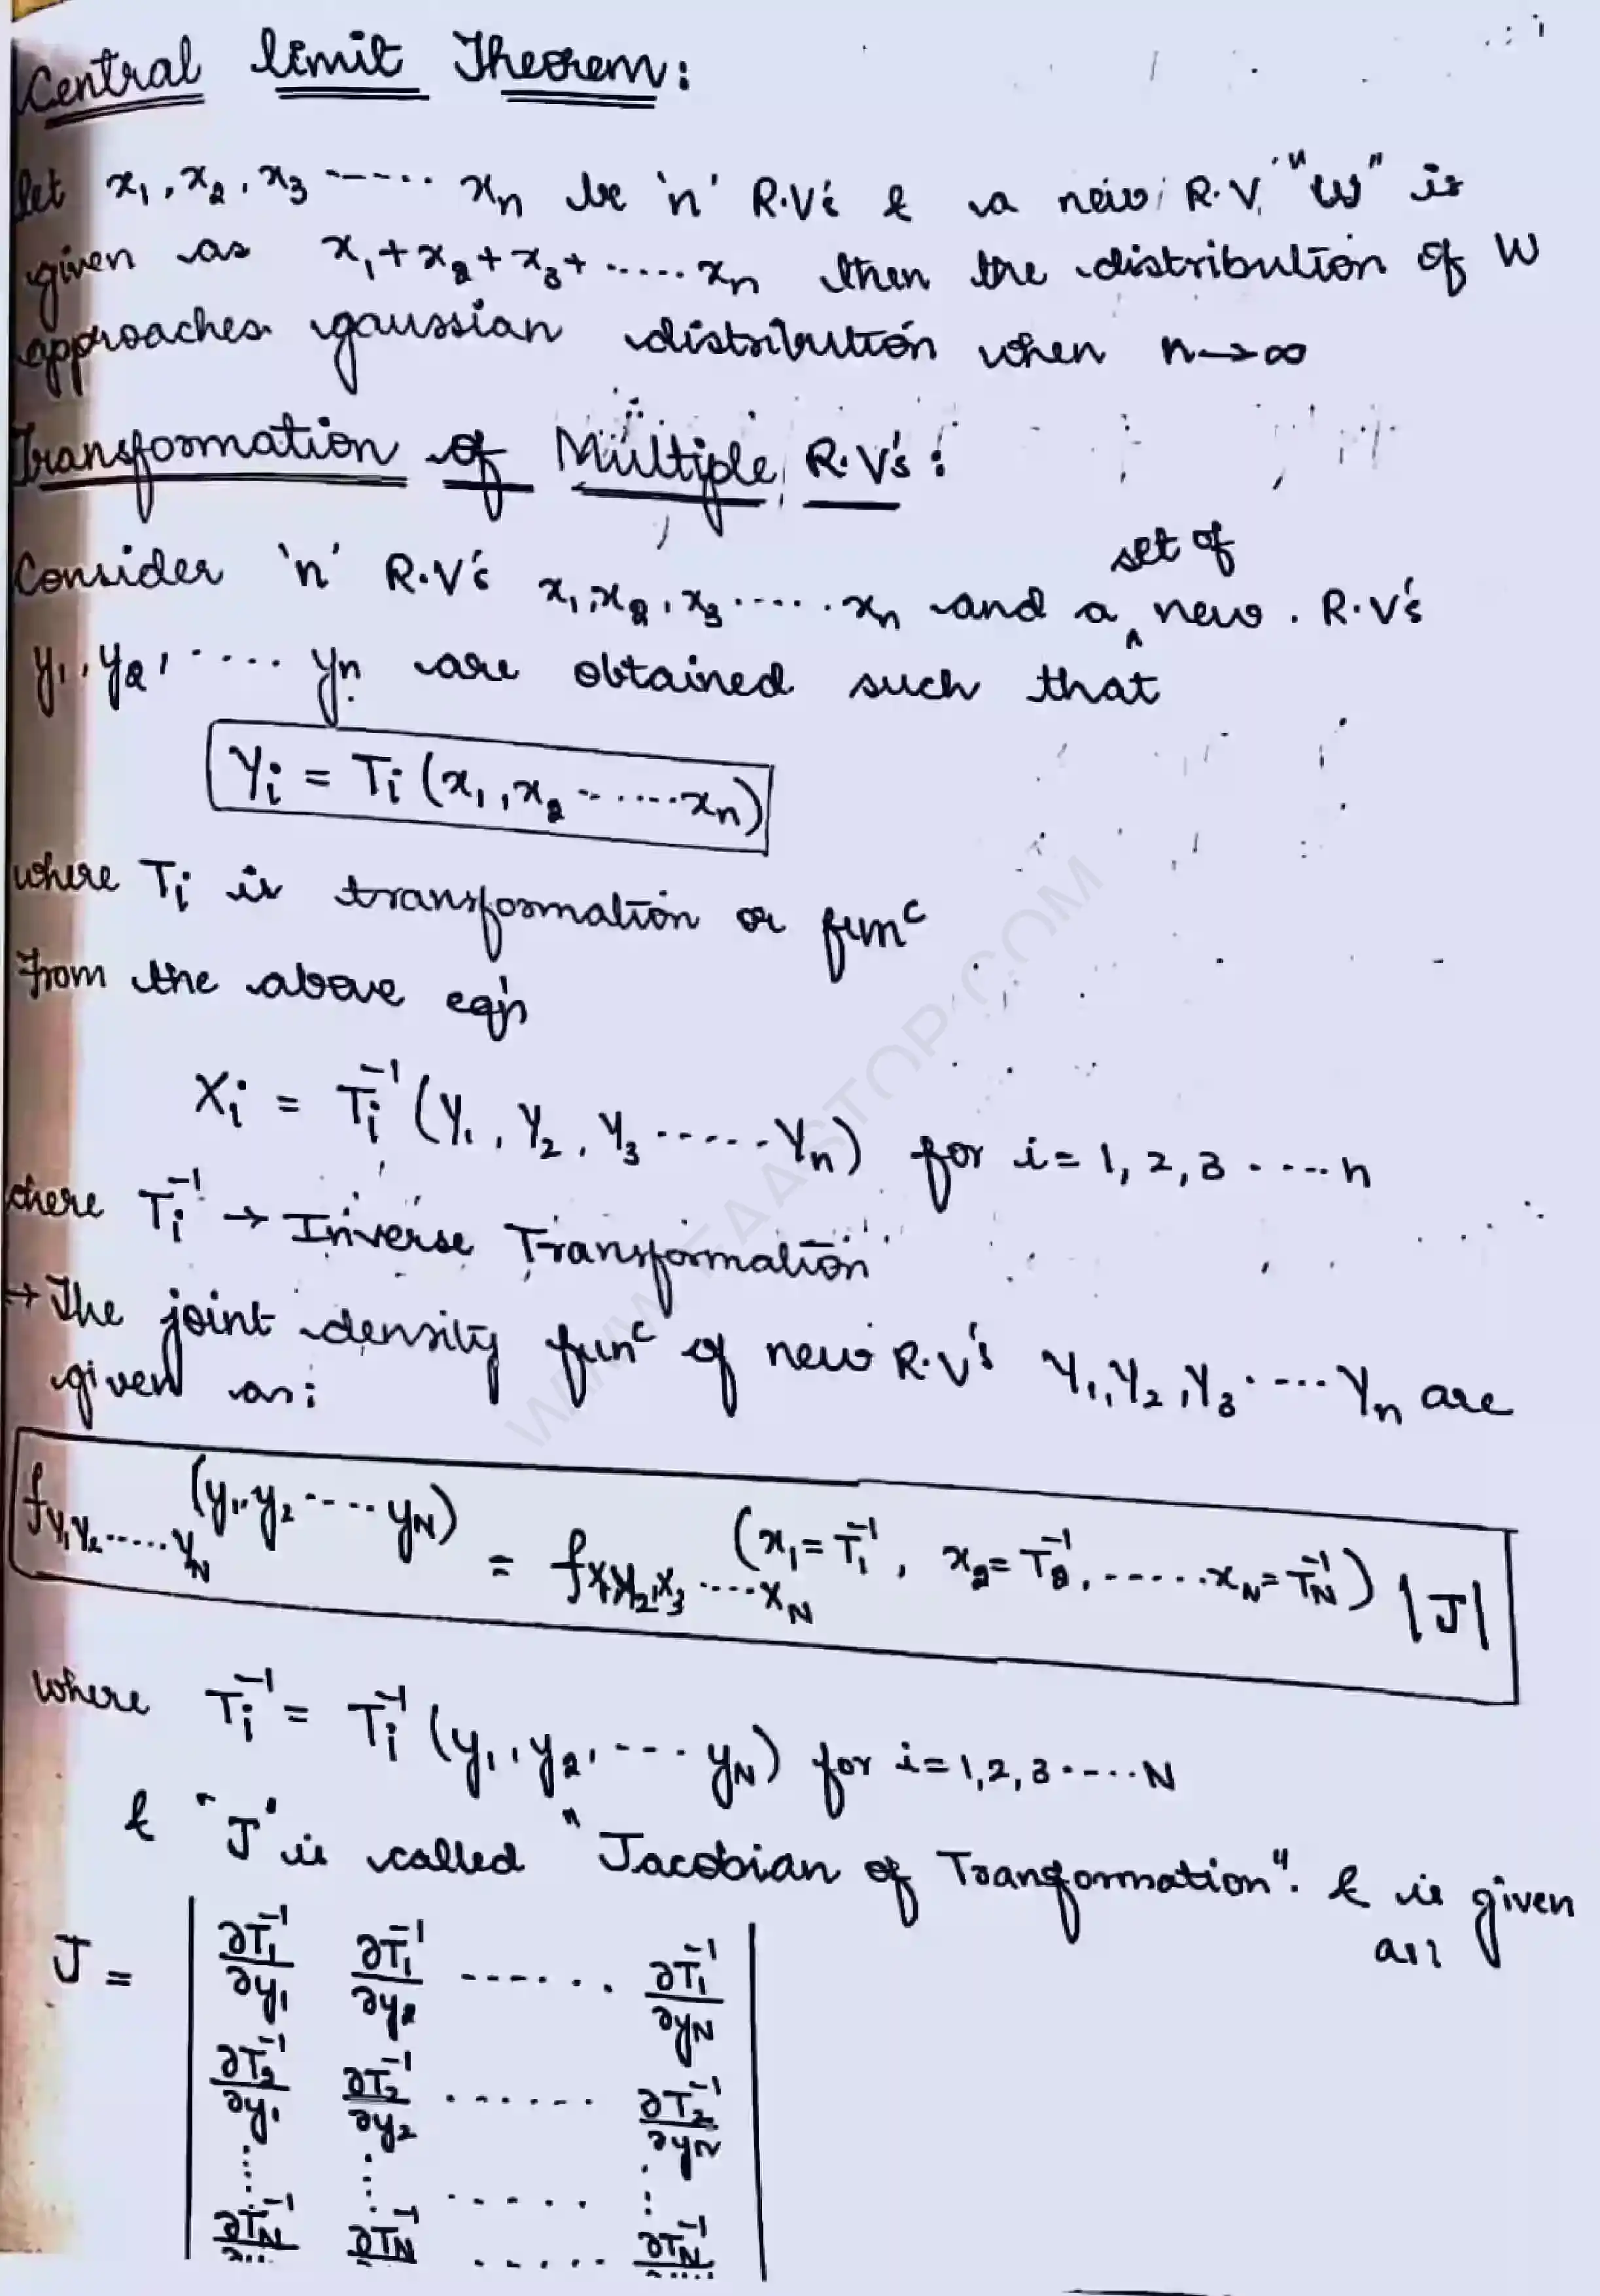 Central limit Theorem:
let x₁, x₂, x₃ ------ xₙ be 'n' R.V's & a new R.V. "W" is
given as x₁+x₂+x₃+ ...... xₙ then the distribution of W
approaches gaussian distribution when n→∞
Transformation of Multiple R.V's:
set of
Consider 'n' R.V's x₁, x₂, x₃ ...... xₙ and a ^ new R.V's
y₁, y₂, ..... yₙ are obtained such that
Yᵢ = Tᵢ (x₁, x₂ ....... xₙ)
where Tᵢ is transformation or funᶜ
From the above eqn
Xᵢ = Tᵢ⁻¹ (Y₁, Y₂, Y₃ ...... Yₙ) for i = 1, 2, 3 ..... n
where Tᵢ⁻¹ → Inverse Transformation
→ The joint density funᶜ of new R.V's Y₁, Y₂, Y₃ .... Yₙ are
given as:
f_{Y₁Y₂......Y_N} (y₁, y₂ ..... y_N) = f_{X₁X₂,X₃ ..... X_N} (x₁ = T₁⁻¹, x₂ = T₂⁻¹, ...... x_N = T_N⁻¹) |J|
where Tᵢ⁻¹ = Tᵢ⁻¹ (y₁, y₂, .... y_N) for i = 1, 2, 3 ..... N
& "J" is called "Jacobian of Transformation". & is given
as:
J = | ∂T₁⁻¹/∂y₁ ∂T₁⁻¹/∂y₂ ------. . . ∂T₁⁻¹/∂y_N |
∂T₂⁻¹/∂y₁ ∂T₂⁻¹/∂y₂ ....... ∂T₂⁻¹/∂y_N
⋮ ⋮ ...... ⋮
∂T_N⁻¹ ∂T_N⁻¹ ...... ∂T_N⁻¹